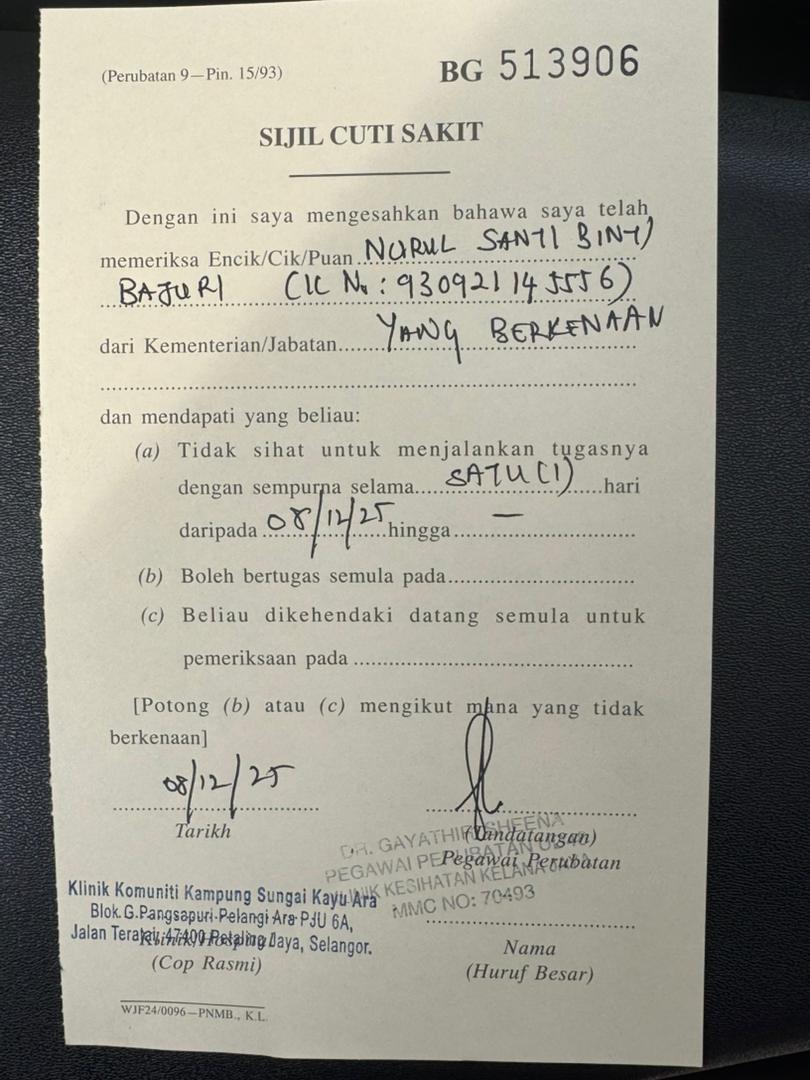 (Perubatan 9—Pin. 15/93)
BG 513906
SIJIL CUTI SAKIT
Dengan ini saya mengesahkan bahawa saya telah
memeriksa Encik/Cik/Puan NURUL SANTI BINTI
BAJURI (IC No: 930921145556)
dari Kementerian/Jabatan YANG BERKENAAN
dan mendapati yang beliau:
(a) Tidak sihat untuk menjalankan tugasnya
dengan sempurna selama SATU (1) hari
daripada 08/12/25 hingga —
(b) Boleh bertugas semula pada
(c) Beliau dikehendaki datang semula untuk
pemeriksaan pada
[Potong (b) atau (c) mengikut mana yang tidak
berkenaan]
08/12/25
Tarikh
(Tandatangan)
Pegawai Perubatan
DR. GAYATHIRI SHEENA
PEGAWAI PERUBATAN
KLINIK KESIHATAN KELANA JAYA
MMC NO: 70493
Klinik Komuniti Kampung Sungai Kayu Ara
Blok.G.Pangsapuri Pelangi Ara PJU 6A,
Jalan Teratai, 47400 Petaling Jaya, Selangor.
Klinik/Hospital
(Cop Rasmi)
Nama
(Huruf Besar)
WJF24/0096—PNMB., K.L.